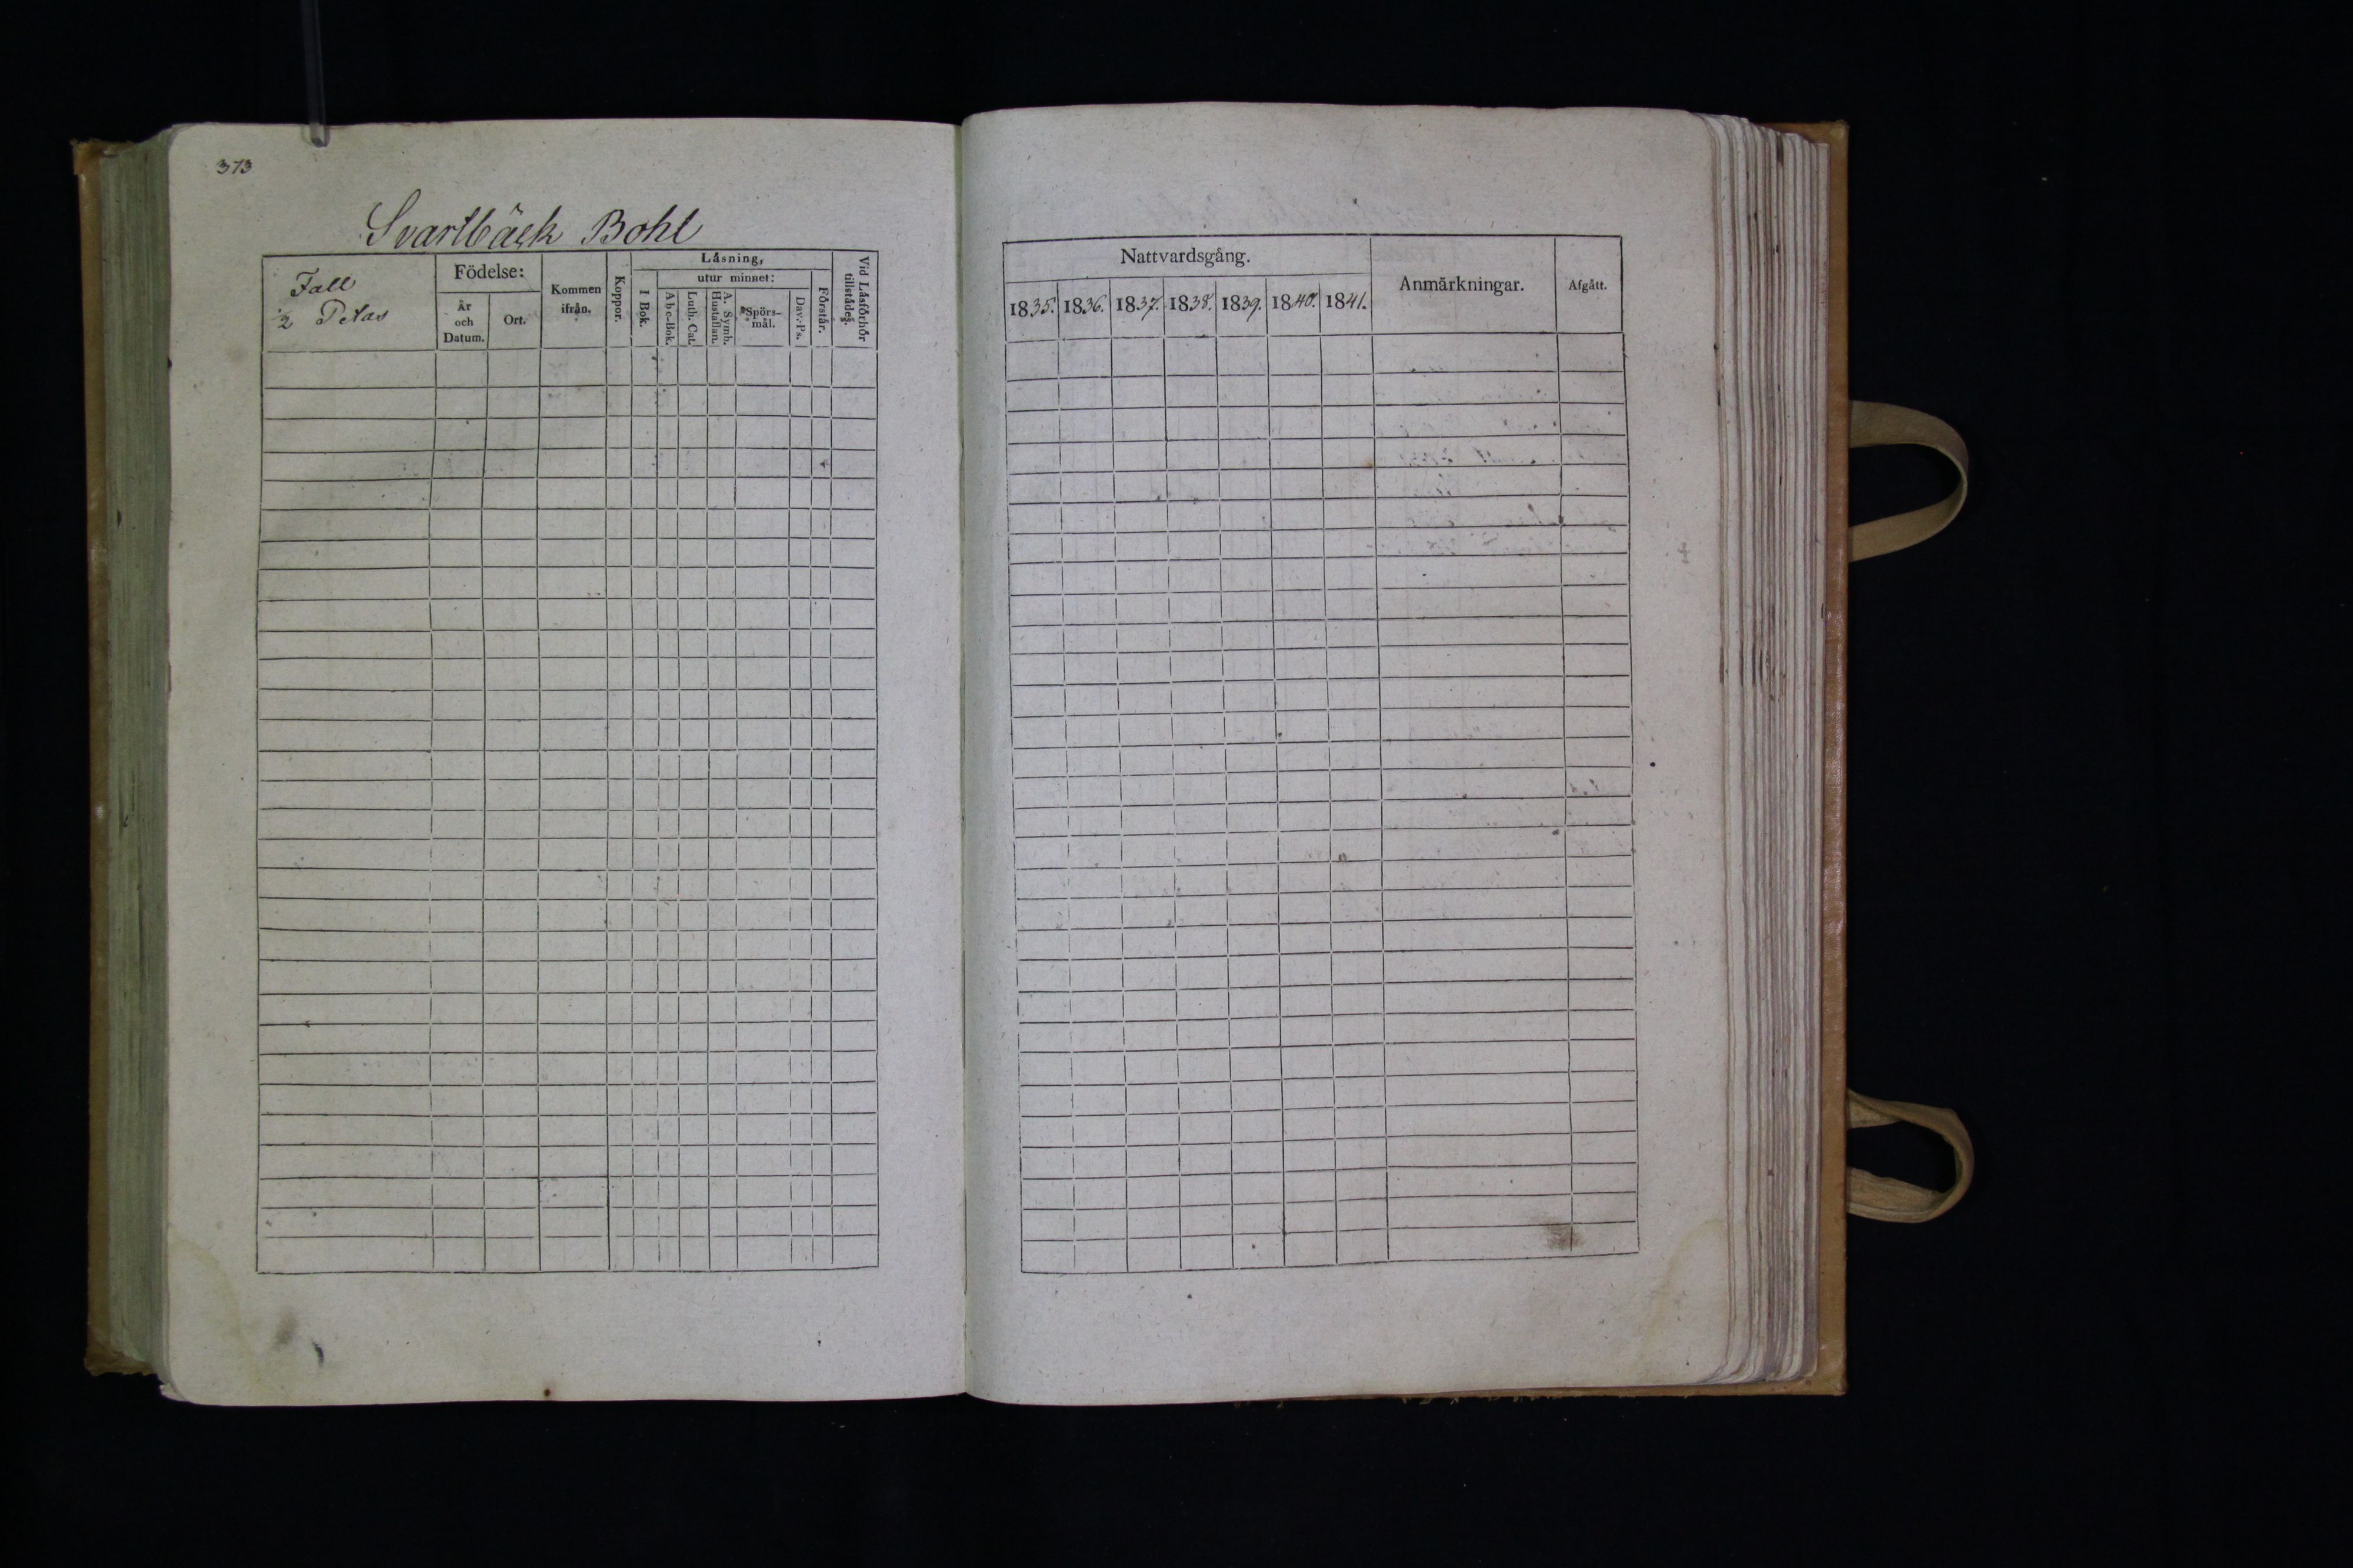 373
Svartbäck Bohl
Fall
1/2 Petas
Födelse:
År och Datum.
Ort.
Kommen ifrån.
Koppor.
Läsning,
I Bok.
utur minnet:
Abc-Bok.
Luth. Cat.
A. Symb. Hustaflan.
Spörs-mål.
Dav. Ps.
Förstår.
Vid Läsförhör tillstådes.
Nattvardsgång.
1835. 1836. 1837. 1838. 1839. 1840. 1841.
Anmärkningar.
Afgått.